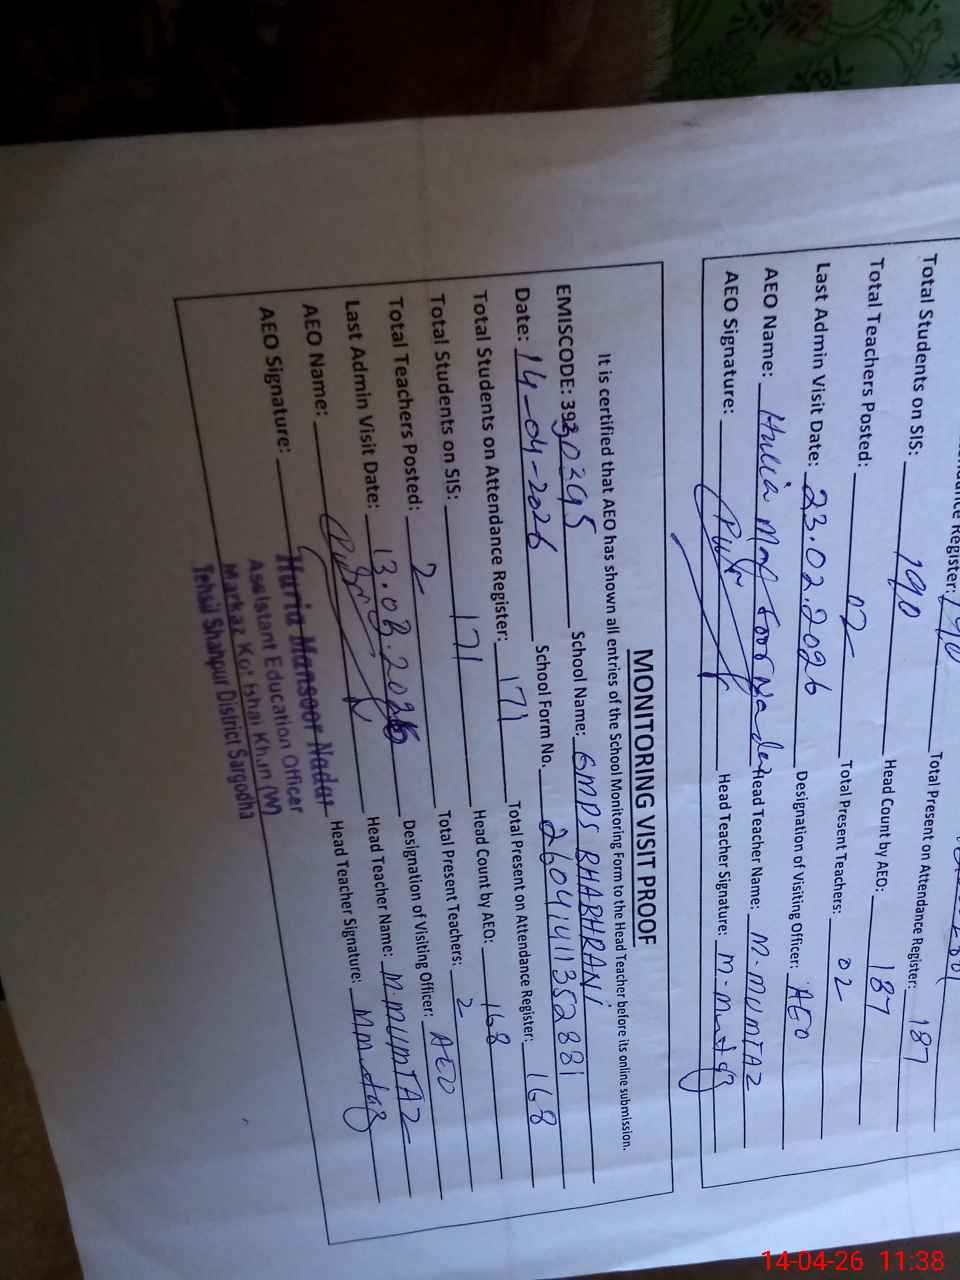 Total Students on SIS: 190 Total Present on Attendance Register: 187
Total Teachers Posted: 02 Head Count by AEO: 187
Last Admin Visit Date: 23.02.2026 Total Present Teachers: 02
Designation of Visiting Officer: AEO
AEO Name: Huria Mansoor Nadar Head Teacher Name: M-MUMTAZ
AEO Signature: Head Teacher Signature: M-Mumtaz
MONITORING VISIT PROOF
It is certified that AEO has shown all entries of the School Monitoring Form to the Head Teacher before its online submission.
EMISCODE: 39230295 School Name: GMPS BHABHRANI
Date: 14-04-2026 School Form No. 26041411352881
Total Students on Attendance Register: 171 Total Present on Attendance Register: 168
Total Students on SIS: 171 Head Count by AEO: 168
Total Teachers Posted: 2 Total Present Teachers: 2
Last Admin Visit Date: 13.03.2026 Designation of Visiting Officer: AEO
AEO Name: Head Teacher Name: M.MUMTAZ
AEO Signature: Head Teacher Signature: M Mumtaz
Huria Mansoor Nadar
Assistant Education Officer
Markaz Kot Bhai Khan (W)
Tehsil Shahpur District Sargodha
14-04-26 11:38